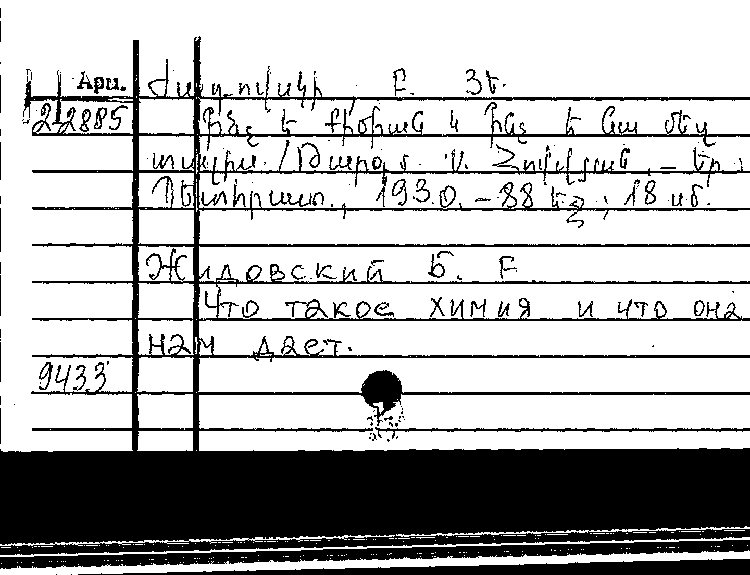 Арм.
22885
Ինչ է քիմիան և ինչ է նա մեզ
տալիս /Թարգմ. Վ. Հովվյան. – Եր.:
Պետհրատ., 1930. – 88 եջ; 18 սմ.
Жидовский Б. Е
Что такое химия и что она
нам дает.
9433